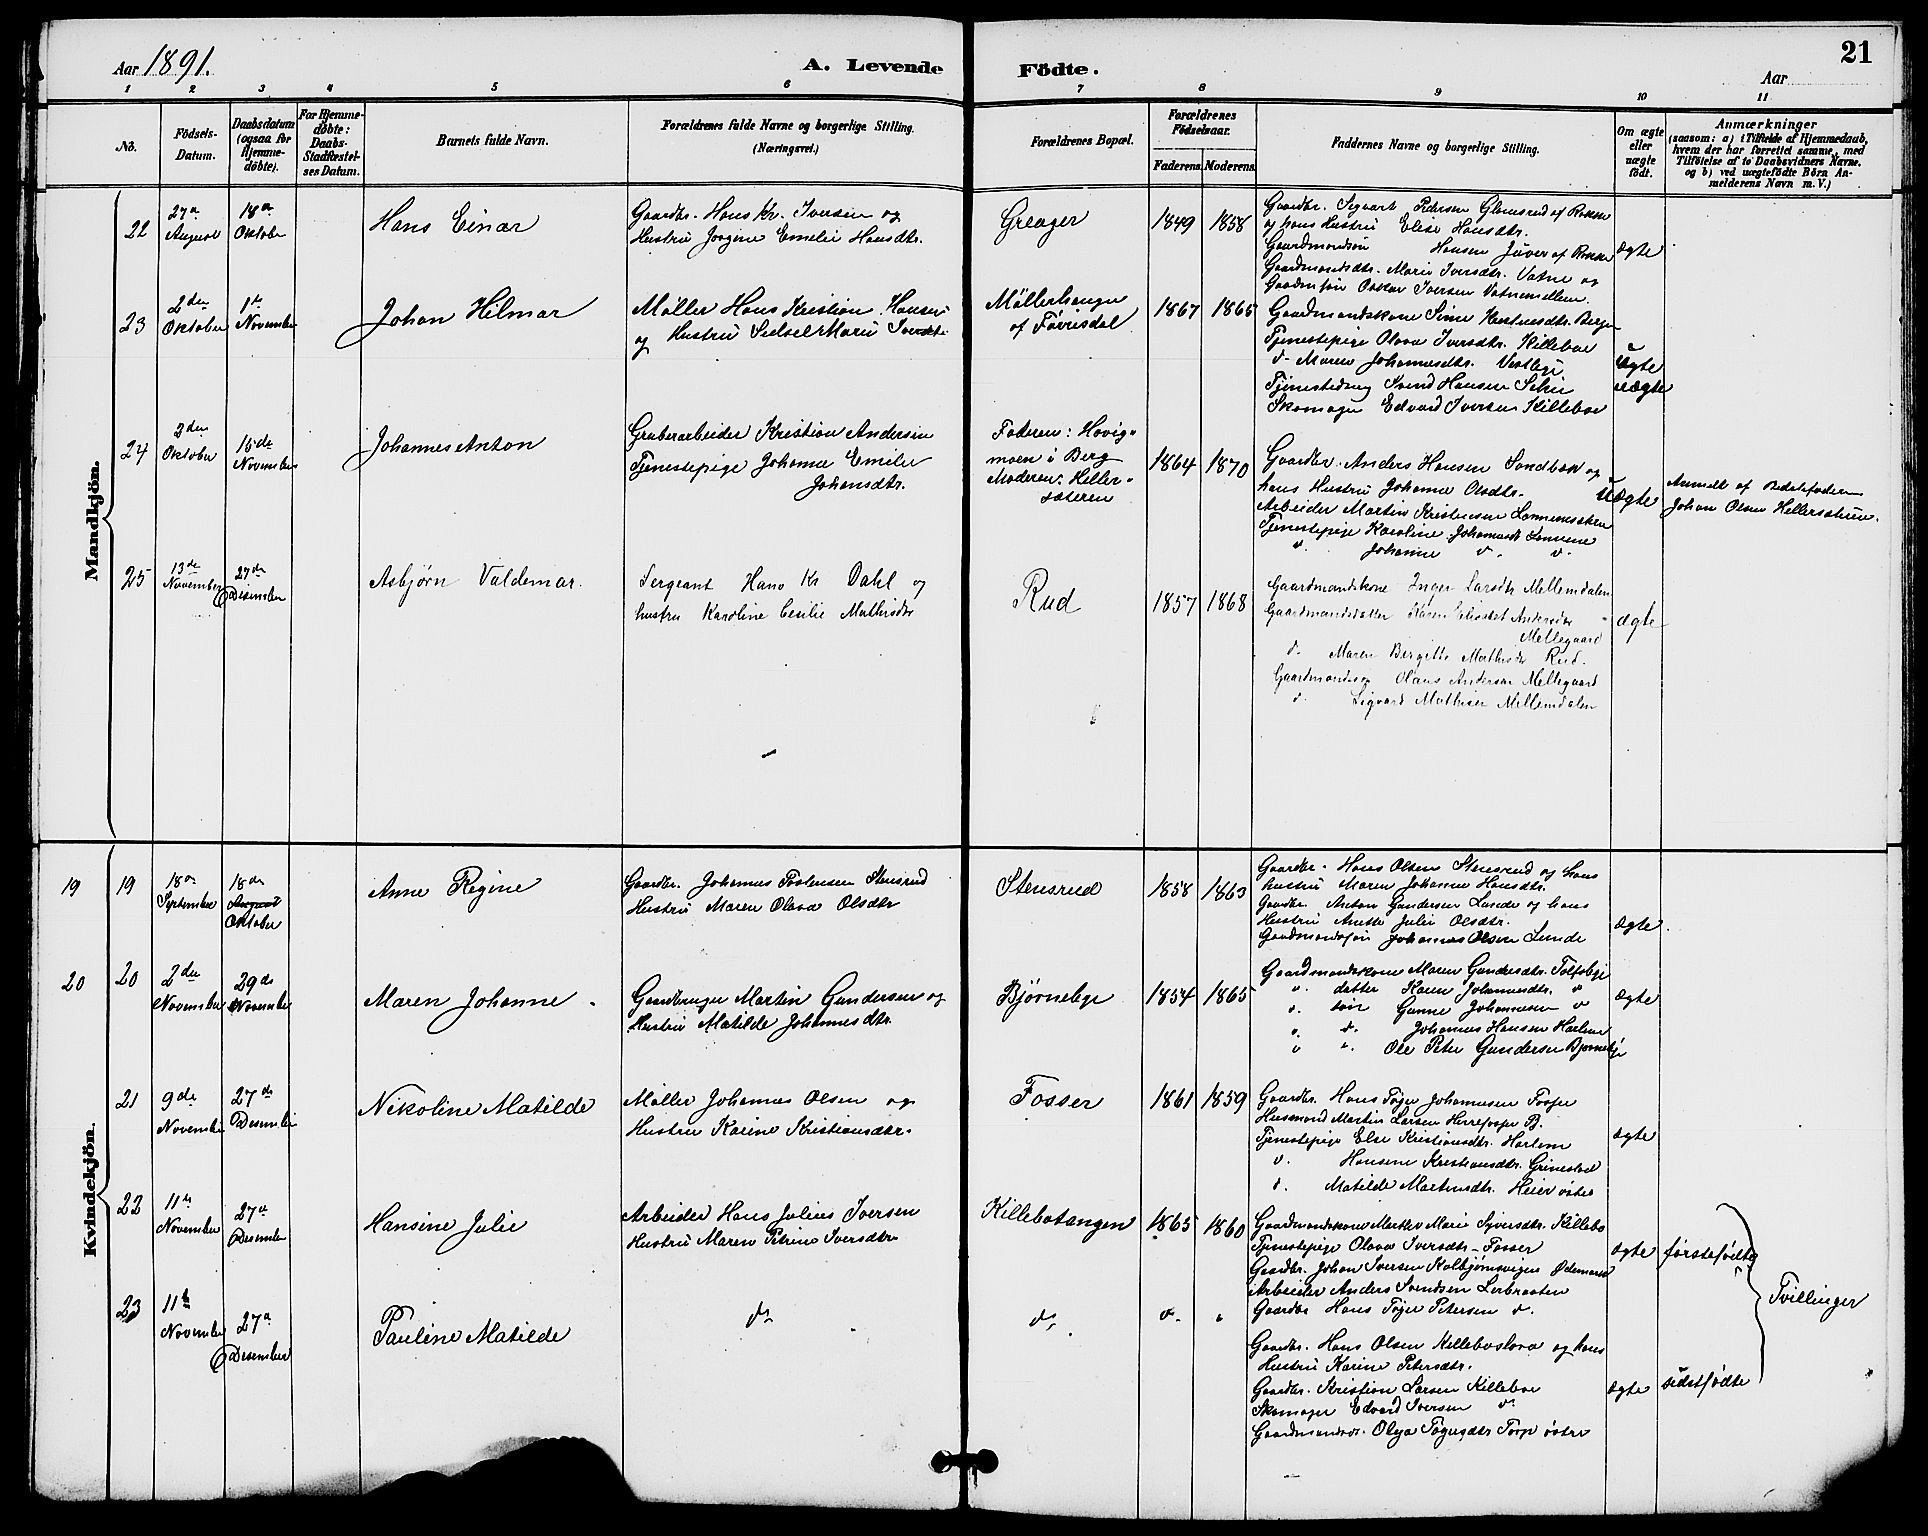 Aar 1891.
A. Levende
Födte.
Aar
21
1 2 3 4 5 6 7 8 9 10 11
No.
Födsels-
Datum.
Daabsdatum
(ogsaa for
Hjemme-
döbte).
For Hjemme-
döbte:
Daabs-
Stadfæstel-
ses Datum.
Barnets fulde Navn.
Forældrenes fulde Navne og borgerlige Stilling.
(Næringsvei.)
Forældrenes Bopæl.
Forældrenes
Födselsaar.
Faderens. Moderens.
Faddernes Navne og borgerlige Stilling.
Om ægte
eller
uægte
födt.
Anmærkninger
(saasom: a) i Tilfælde af Hjemmedaab,
hvem der har forrettet samme, med
Tilföielse af to Daabsvidners Navne,
og b) ved uægtefödte Börn An-
melderens Navn m. V.)
Mandkjön.
22
27de August
18de Oktober
Hans Einar
Gaardbr. Hans Kr. Iversen og
Hustru Jorgine Emelie Hansdtr.
Greager
1849 1858
Gaardbr. Sigvart Pedersen Glomsrud af Rokke
og hans Hustru Elise Hansdtr.
Gaardmandsøn Hansen Juver af Rokke
Gaardmandsdtr. Marie Iversdtr. Vatne og
Gaardm.søn Oskar Iversen Vatnemellem.
ægte
23
2den Oktober
1ste November
Johan Hilmar
Møller Hans Kristian Hansen
og Hustru Sidsel Marie Iversdtr
Møllerhaugen
af Førrisdal
1867 1865
Gaardmandskone Sine Bergen
Tjenestepige Olava Iversdtr. Killeboe
d- Maren Johannesdtr. Vestbye
Tjenestedreng Svend Hansen
Skomager Edvard Iversen Killeboe
Uægte
uægte
24
Oktober
15de November
Johannes Anton
Grubearbeider Kristian Andersen
Tjenestepige Johanne Emilie
Johansdtr.
Faderen: Hovig-
moen i Berg
Moderen: Heller-
sæteren
1864 1870
Gaardbr. Anders Hansen Sandbæk og
hans Hustru Johanne Olsdtr.
Arbeider Martin Kristensen
Tjenestepige Karoline Johannesdt
d. Johanne d. d.
Uægte
Anmeldt af
Johan Olsen Hellersæteren.
25
13de November
27de Desember
Asbjørn Valdemar.
Sergeant Hans Kr Dahl og
hustru Karoline Cecilie Mathisdtr
Rud
1857 1868
Gaardmandskone Inger Larsdtr Mellemdalen
Gaardmandsdatter Karen Elisabet Andersdtr
Mellegaard
d. Maren Birgitte Mathisdtr Rud.
Gaardmandsøn Olaus Andersen Mellegaard
d. Sigvard Mathisen Mellemdalen
ægte
Kvindekjön.
19 19
18de September
18de August Oktober
Anne Regine
Gaardbr. Johannes Torstensen Stensrud
Hustru Maren Olava Olsdtr
Stensrud
1858 1863
Gaardbr. Hans Olsen Stensrud og hans
hustru Maren Johanne Hansdtr.
Gaardbr. Anton Gundersen Lunde og hans
Hustru Anette Julie Olsdtr.
Gaardmandsøn Johannes Olsen Lunde
ægte.
20 20
2den November
29de November
Maren Johanne
Gaardbruger Martin Gundersen og
Hustru Matilde Johannesdtr.
Bjørnebye
1854 1865
Gaardmandskone Maren Gundersdtr. Tolfsbye
" datter Karen Johannesdtr. "
d. søn Gunne Johannesen "
" d. Johannes Hansen Harlem
" " Ole Peter Gundersen Bjørnebye
ægte
21
9de November
27de Desember
Nikoline Matilde
Møller Johannes Olsen og
Hustru Karine Kristiansdtr.
Fosser
1861 1859
Gaardbr. Hans Tøger Johannesen Fosser
Husmand Martin Larsen Herrefosser B.
Tjenestepige Else Kristiansdtr. Harlem
d. Hansene Kristiansdtr.
d. Matilde Martinsdtr. Heier østre
ægte
22
11te November
27de Desember
Hansine Julie
Arbeider Hans Julius Iversen
Hustru Maren Petrine Iversdtr
Killebotangen
1865 1860
Gaardmandskone Marthe Marie Syversdtr. Killebo
Tjenestepige Olava Iversdtr- Fosser
Gaardbr. Johan Iversen Kolbjørnsvigen Ødemark
Arbeider Anders Svendsen Lerbraaten
Gaardbr Hans Tøger Petersen d.
ægte
førstefødte
Tvillinger
23
11te November
27de Desember
Pauline Matilde
d.
d.
d. "
Gaardbr. Hans Olsen Killeboslora og hans
Hustru Karine Petersdtr.
Gaardbr. Kristian Larsen Killeboe
Skomager Edvard Iversen d.
Gaardmandsdr. Olga Tøgersdtr Torp østre
ægte
sidstfødte